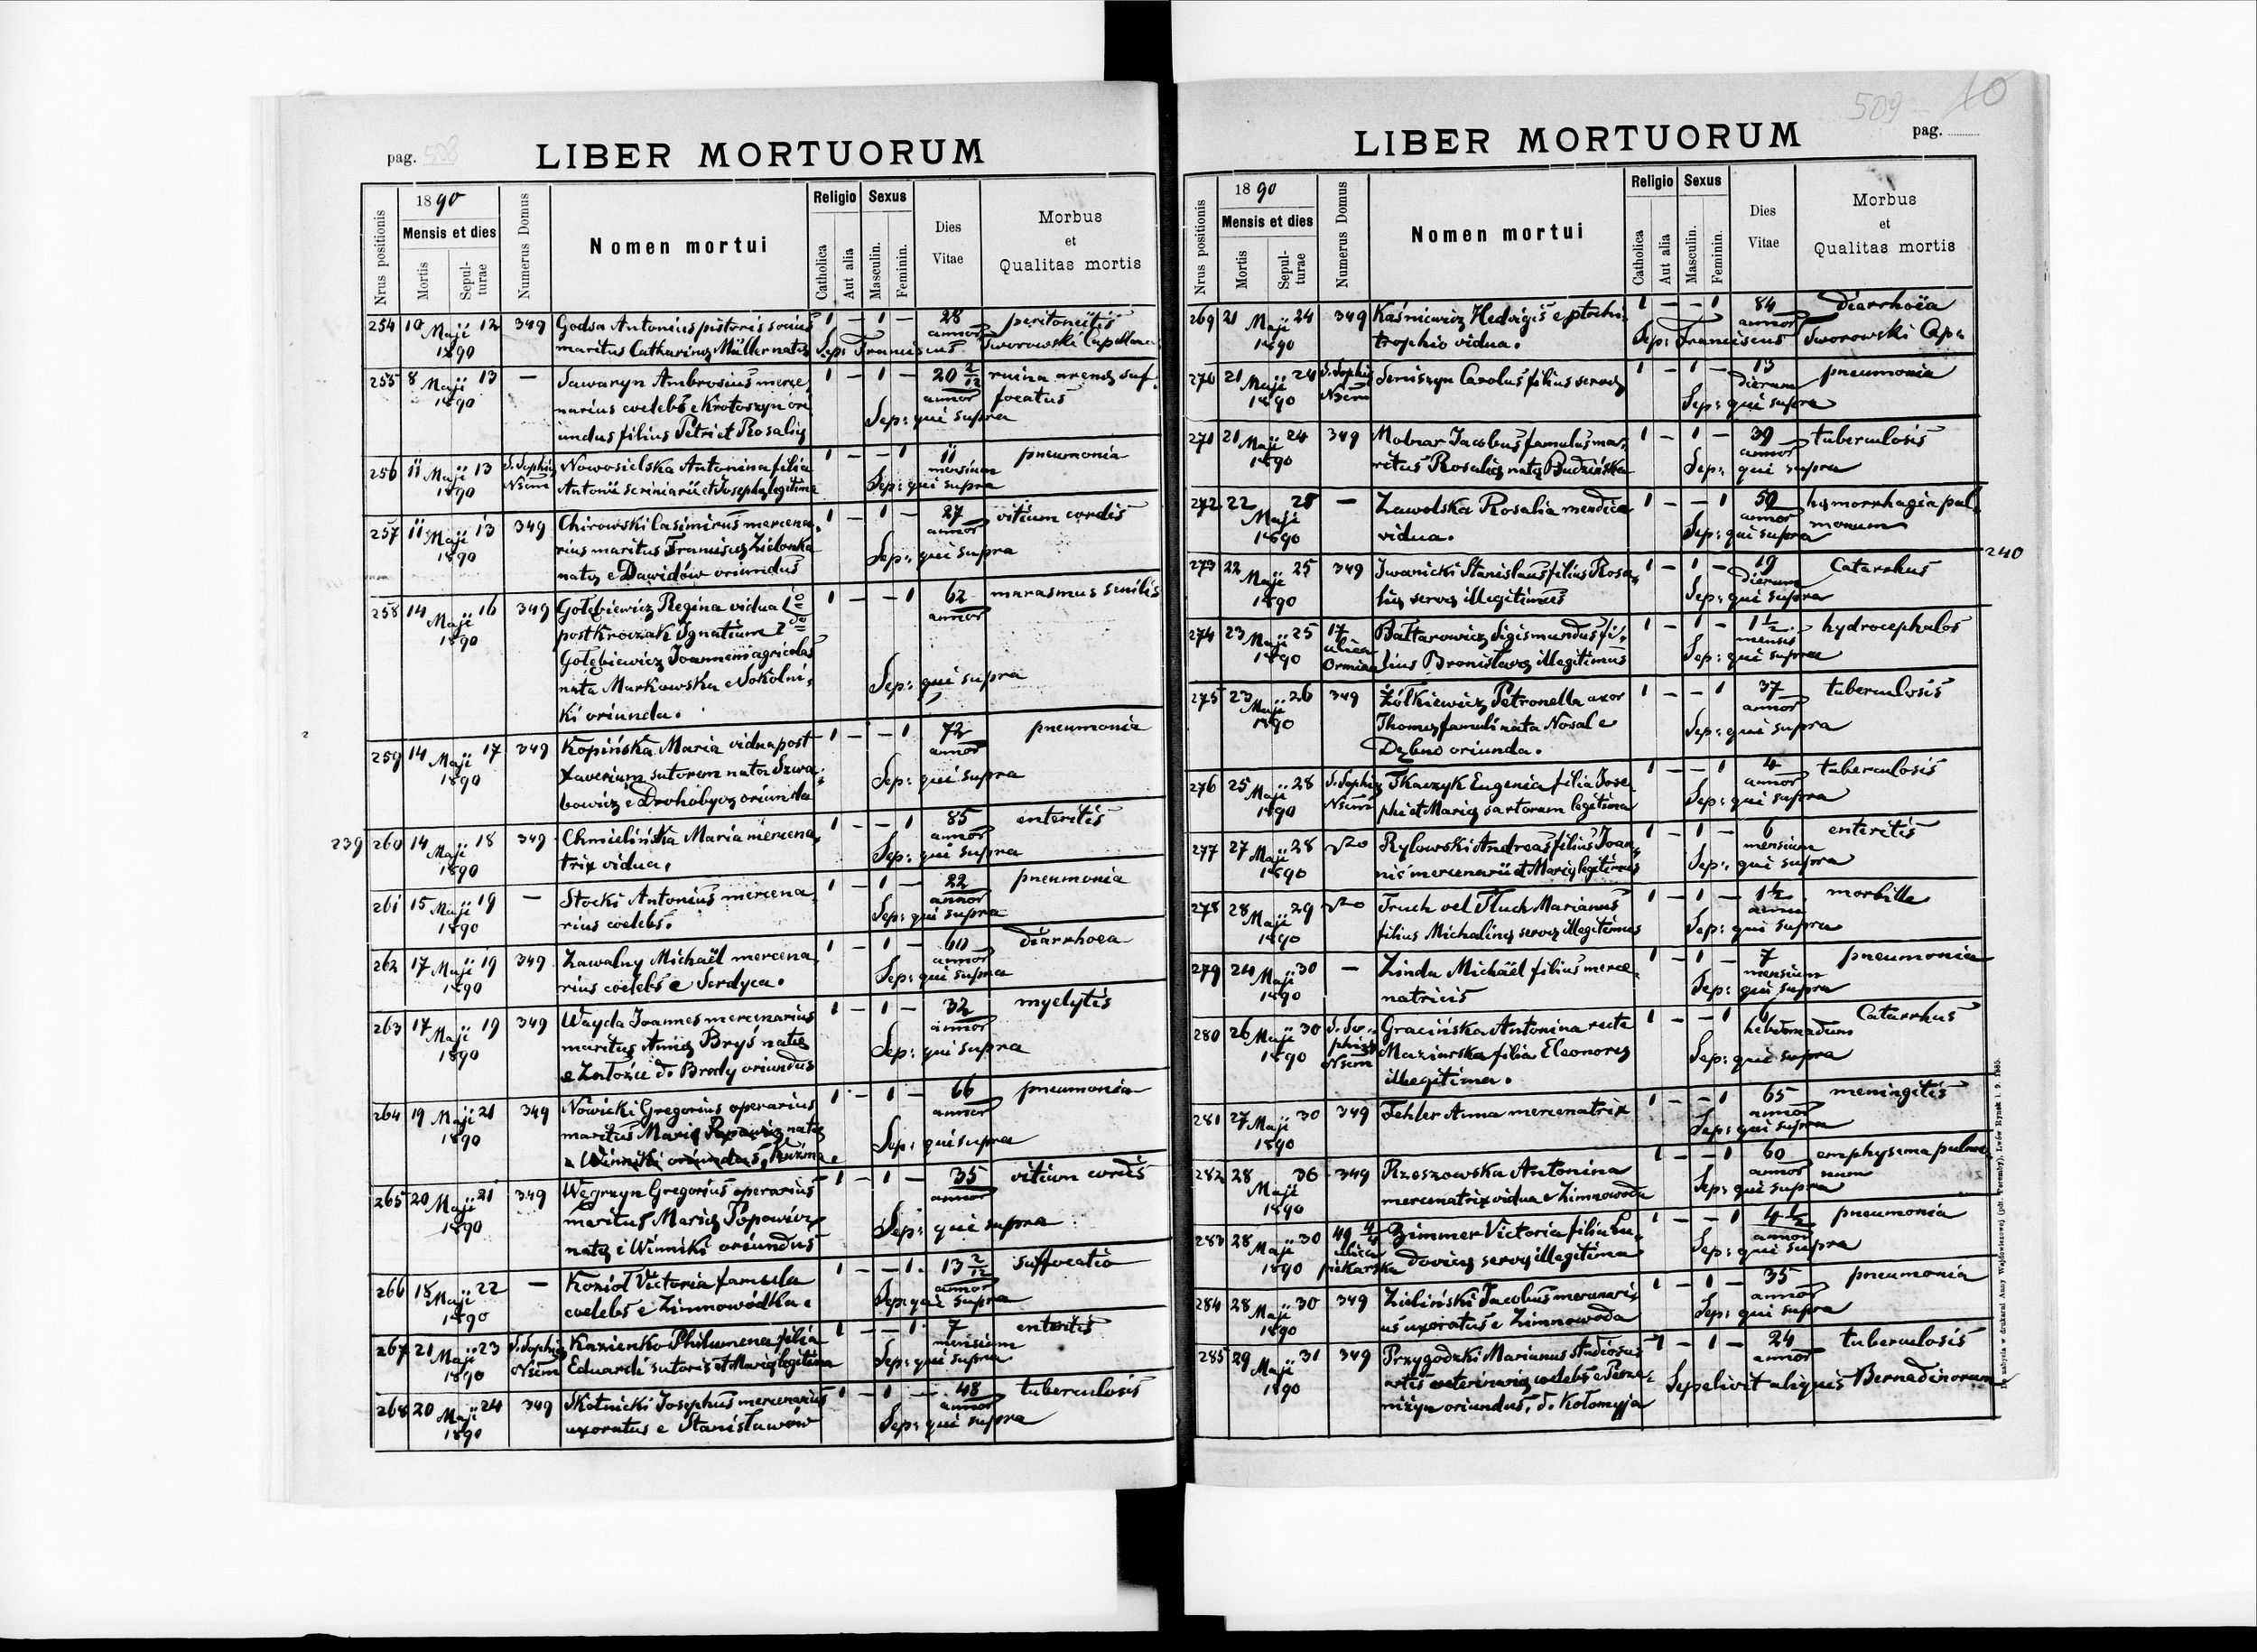 pag. 508
LIBER MORTUORUM
Nrus positionis
1890
Mensis et dies
Mortis
Sepulturae
Numerus Domus
Nomen mortui
Religio
Catholica
Aut alia
Sexus
Masculin.
Feminin.
Dies
Vitae
Morbus
et
Qualitas mortis
254 10 Maji 12 349 Godsa Antonius pistoris socius 1 – 1 – 28 peritoneitis
1890 maritus Catharinę Müller natę Sep: Franciscus annor Sworowski Capellanus
255 8 Maji 13 — Sawaryn Ambrosius merce, 1 – 1 – 20 2/12 ruina arenę suf,
1890 narius coelebs e Krotoszyn ori annor focatus
undus filius Petri et Rosalię Sep: qui supra
256 11 Maji 13 S. Sophię Nowosielska Antonina filia 1 – – 1 11 pneumonia
1890 Nsem Antonii scriniarii et Josephę legitima mensium Sep: qui supra
257 11 Maji 13 349 Chirowski Casimirus mercena, 1 – 1 – 27 vitium cordis
1890 rius maritus Franciscę Zielonka annor
natę e Dawidów oriundus Sep: qui supra
258 14 Maji 16 349 Gołębiewicz Regina vidua 1 – – 1 62 marasmus senilis
1890 post Kroczak Ignatium 2do annor
Gołębiewicz Joannem agricolas
nata Markowska e Sokolni, Sep: qui supra
ki oriunda.
259 14 Maji 17 349 Kopińska Maria vidua post 1 – – 1 72 pneumonia
1890 Xaverium sutorem nata Szwa, annor
bowicz e Drohobycz oriunda Sep: qui supra
239
260 14 Maji 18 349 Chmielińska Maria mercena, 1 – – 1 85 enteritis
1890 trix vidua. annor Sep: qui supra
261 15 Maji 19 — Stocki Antonius mercena, 1 – 1 – 22 pneumonia
1890 rius coelebs. annor Sep: qui supra
262 17 Maji 19 349 Zawalny Michaël mercena, 1 – 1 – 60 diarrhoea
1890 rius coelebs e Serdyca. annor Sep: qui supra
263 17 Maji 19 349 Wayda Joannes mercenarius 1 – 1 – 32 myelytis
1890 maritus Annę Bryś natę annor
e Załoźce d. Brody oriundus Sep: qui supra
264 19 Maji 21 349 Nowicki Gregorius operarius 1 – 1 – 66 pneumonia
1890 maritus Marię Popowicz natę annor
e Winniki oriundus, Kuzma. Sep: qui supra
265 20 Maji 21 349 Węgrzyn Gregorius operarius 1 – 1 – 35 vitium cordis
1890 maritus Marię Popowicz annor
natę e Winniki oriundus Sep: qui supra
266 18 Maji 22 — Kozioł Victoria famula 1 – – 1 13 2/12 suffocatio
1890 coelebs e Zimnowódka. annor Sep: qui supra
267 21 Maji 23 S. Sophię Kazienko Philumena filia 1 – – 1 7 enteritis
1890 Nsem Eduardi sutoris et Marię legitima mensium Sep: qui supra
268 20 Maji 24 349 Skotnicki Josephus mercenarius 1 – 1 – 48 tuberculosis
1890 uxoratus e Stanisławów annor Sep: qui supra
509 10
LIBER MORTUORUM
pag.
Nrus positionis
1890
Mensis et dies
Mortis
Sepulturae
Numerus Domus
Nomen mortui
Religio
Catholica
Aut alia
Sexus
Masculin.
Feminin.
Dies
Vitae
Morbus
et
Qualitas mortis
269 21 Maji 24 349 Kaśniewicz Hedvigis e ptocho, 1 – – 1 84 diarrhoïa
1890 trophio vidua. annor Sep: Franciscus Sworowski Cap:
270 21 Maji 24 S. Sophię Seniszyn Carolus filius servę 1 – 1 – 13 pneumonia
1890 Nsem dierum Sep: qui supra
271 21 Maji 24 349 Molnar Jacobus famulus mar, 1 – 1 – 39 tuberculosis
1890 ritus Rosalię natę Budzińska annor Sep: qui supra
272 22 Maji 25 — Zawolska Rosalia mendica 1 – – 1 50 hęmorrhagia pul,
1890 vidua. annor monum Sep: qui supra
240
273 22 Maji 25 349 Iwanicki Stanislaus filius Rosa, 1 – 1 – 19 Catarrhus
1890 lię servę illegitimus dierum Sep: qui supra
274 23 Maji 25 17 ulica Ormian Bałtarowicz Sigismundus fi, 1 – 1 – 1 1/2 hydrocephalos
1890 lius Bronisławę illegitimus mensis Sep: qui supra
275 23 Maji 26 349 Żółkiewicz Petronella uxor 1 – – 1 37 tuberculosis
1890 Thomę famuli nata Nosal e annor
Dębno oriunda. Sep: qui supra
276 25 Maji 28 S. Sophię Tkaczyk Eugenia filia Jose 1 – – 1 4 tuberculosis
1890 Nsem phi et Marię sartorum legitima annor Sep: qui supra
277 27 Maji 28 Rylowski Andreas filius Joan, 1 – 1 – 6 enteritis
1890 nis mercenarii et Marię legitimus mensium Sep: qui supra
278 28 Maji 29 Truch vel Tluch Marianus 1 – 1 – 1 1/2 morbille
1890 filius Michalinę servę illegitimus anni Sep: qui supra
279 24 Maji 30 — Zinda Michäel filius merce, 1 – 1 – 7 pneumonia
1890 natricis mensium Sep: qui supra
280 26 Maji 30 S. So, phię Nsem Gracińska Antonina recte 1 – – 1 6 Catarrhus
1890 Maziarska filia Eleonorę hebdomadum
illegitima. Sep: qui supra
281 27 Maji 30 349 Fehler Anna mercenatrix 1 – – 1 65 meningitis
1890 annor Sep: qui supra
282 28 Maji 30 349 Rzeszowska Antonina 1 – – 1 60 emphysema pulmo,
1890 mercenatrix vidua e Zimnowoda annor num Sep: qui supra
283 28 Maji 30 49 4/4 ulica piekarska Zimmer Victoria filia Lu, 1 – – 1 4 1/2 pneumonia
1890 dovicę servę illegitima annor Sep: qui supra
284 28 Maji 30 349 Zieliński Jacobus mercenari, 1 – 1 – 35 pneumonia
1890 us uxoratus e Zimnowoda annor Sep: qui supra
285 29 Maji 31 349 Przygodzki Marianus studiosus 1 – 1 – 24 tuberculosis
1890 artis veterinarię coelebs e Pere, annor
niżyn oriundus, d. Kołomyja Sepelivit aliquis Bernadinorum